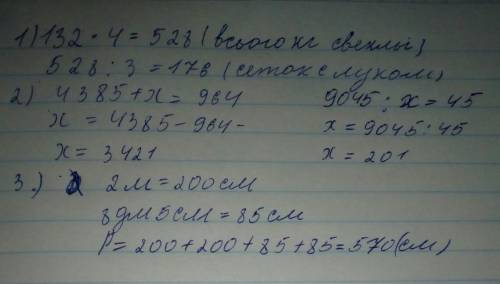 1) 132 · 4 = 528 (всього кг свеклы)
528 : 3 = 176 (сеток с луком)
2) 4385 + x = 964 9045 : x = 45
x = 4385 - 964 - x = 9045 : 45
x = 3421 x = 201
3.) 2м = 200 см
8дм 5см = 85 см
P = 200 + 200 + 85 + 85 = 570 (см)